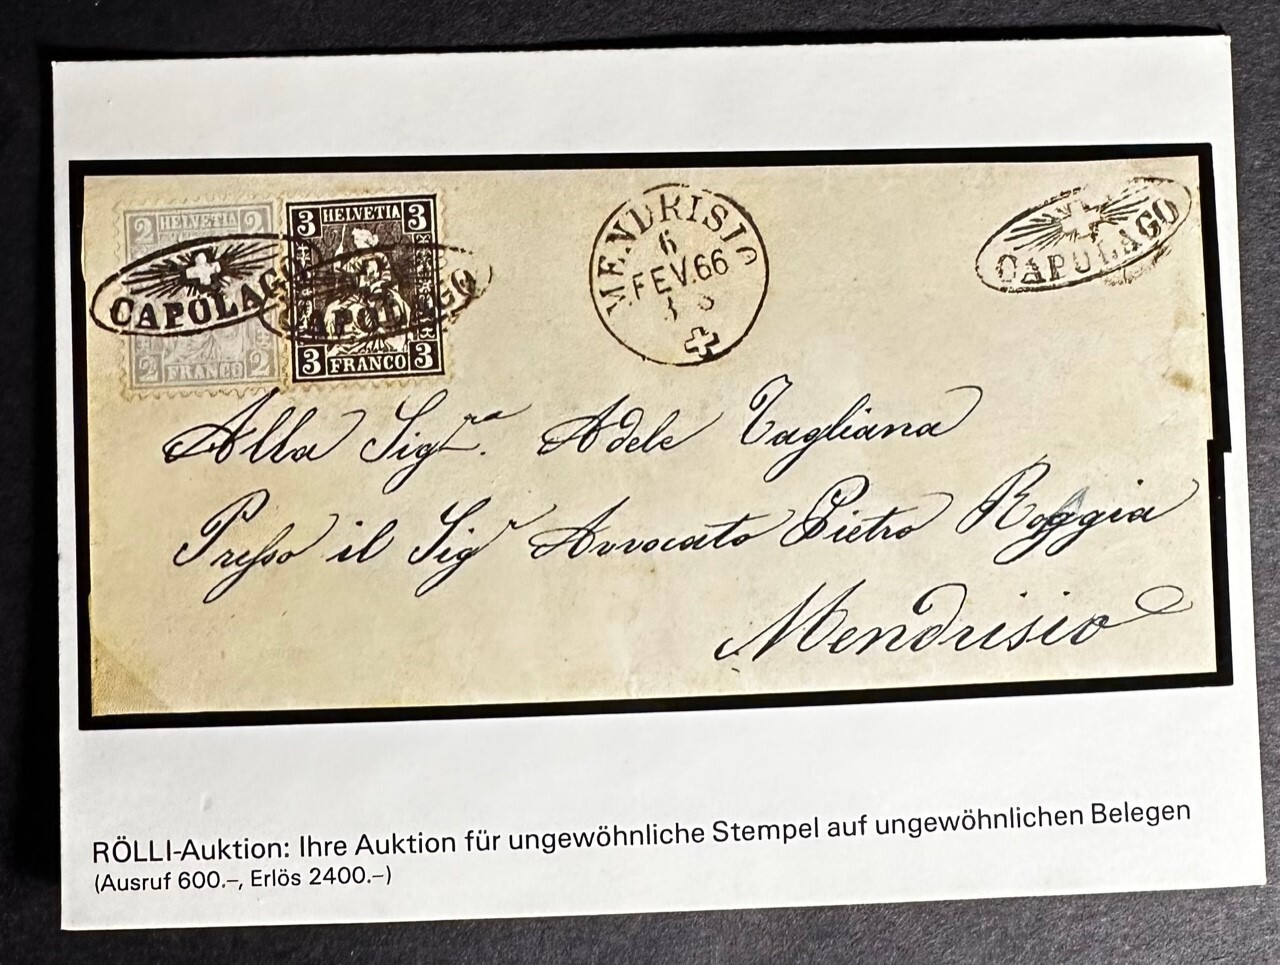 2 HELVETIA 2
3 HELVETIA 3
CAPOLAGO
CAPOLAGO
2 FRANCO 2
3 FRANCO 3
MENDRISIO
6
FEV. 66
CAPOLAGO
Alla Sigra. Adele Tagliana
Presso il Sigr Avvocato Pietro Roggia
Mendrisio
RÖLLI-Auktion: Ihre Auktion für ungewöhnliche Stempel auf ungewöhnlichen Belegen
(Ausruf 600.–, Erlös 2400.–)